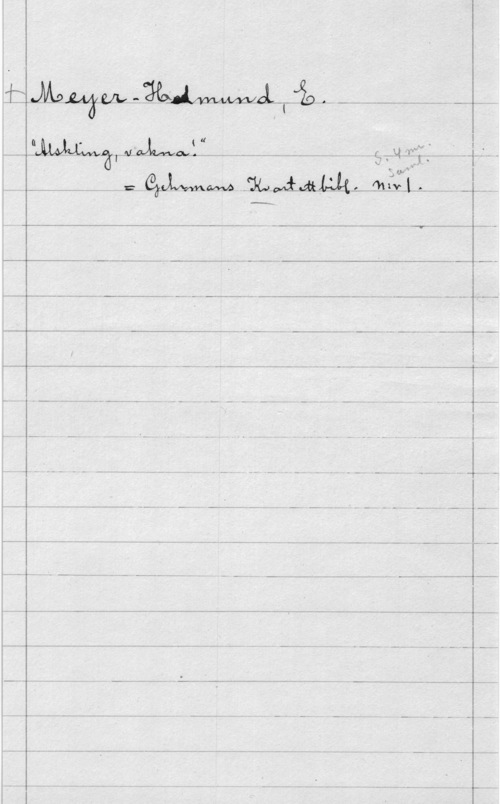 + Meyer-Helmund, E.
"Älskling, vakna!"
S. 4 mr.
Saml.
= Gehrmans Kvartettbibl. N:r 1.